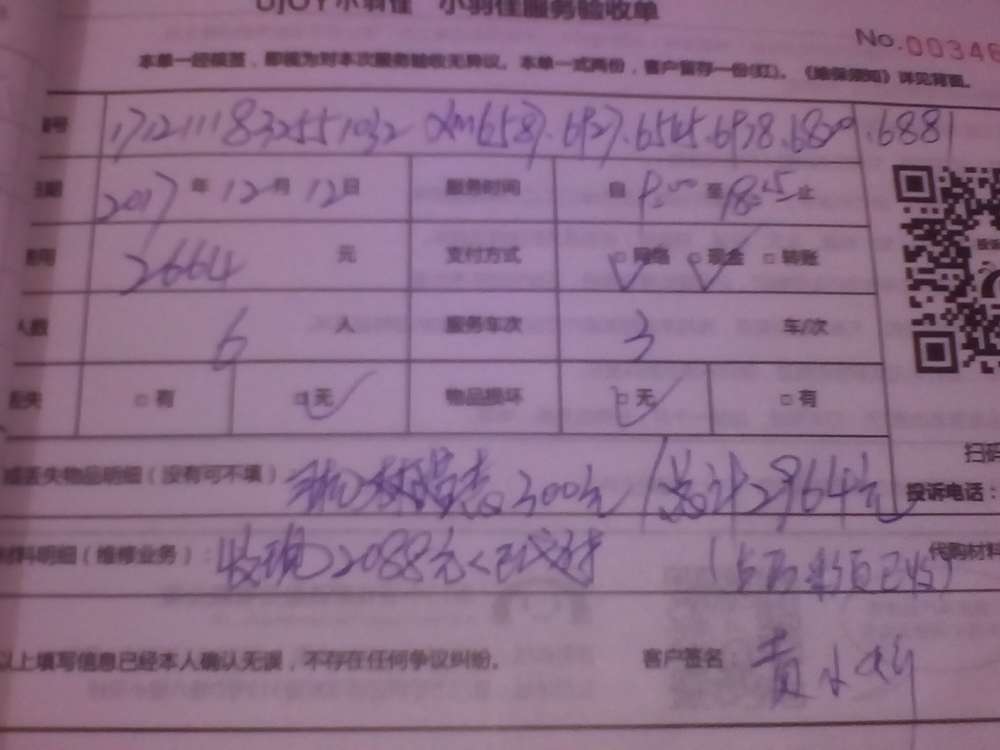 UJOY小羽佳 小羽佳服务验收单
No.00346
本单一经核签，即视为对本次服务验收无异议。本单一式两份，客户留存一份(红)。《维保须知》详见背面。
17121118325551032 6587.6927.6545.6938.6820.6881
日期 2017年12月12日 服务时间 自 至18:25止
费用 2664 元 支付方式 □网络 □现金 □转账
人数 6 人 服务车次 3 车/次
丢失 □有 □无 物品损坏 □无 □有
扫码
或丢失物品明细（没有可不填） 300元/总计2964元 投诉电话：
材料明细（维修业务）： 收现2088元 代购材料
以上填写信息已经本人确认无误，不存在任何争议纠纷。 客户签名 黄小